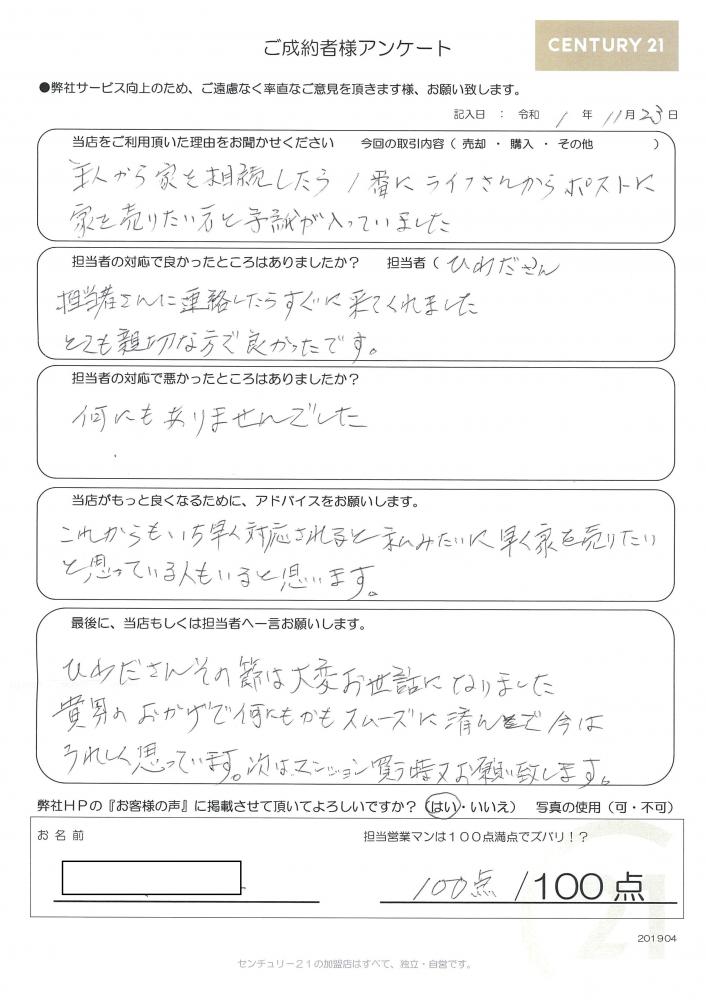 ご成約者様アンケート
CENTURY 21
●弊社サービス向上のため、ご遠慮なく率直なご意見を頂きます様、お願い致します。
記入日 : 令和 1 年 11月23日
当店をご利用頂いた理由をお聞かせください 今回の取引内容（ 売却 ・ 購入 ・ その他 ）
主人から家を相続したら1番にライフさんからポストに
家を売りたい方と手紙が入っていました
担当者の対応で良かったところはありましたか? 担当者（ ひわださん
担当者さんに連絡したらすぐに来てくれました
とても親切な方で良かったです。
担当者の対応で悪かったところはありましたか?
何にもありませんでした
当店がもっと良くなるために、アドバイスをお願いします。
これからもいち早く対応されると私みたいに早く家を売りたい
と思っている人もいると思います。
最後に、当店もしくは担当者へ一言お願いします。
ひわださんその節は大変お世話になりました
貴男のおかげで何にもかもスムーズに済んで今は
うれしく思っています。次はマンション買う時又お願い致します。
弊社HPの『お客様の声』に掲載させて頂いてよろしいですか?（はい・いいえ） 写真の使用（可・不可）
お名前 担当営業マンは100点満点でズバリ!?
100点 /100点
21
201904
センチュリー21の加盟店はすべて、独立・自営です。